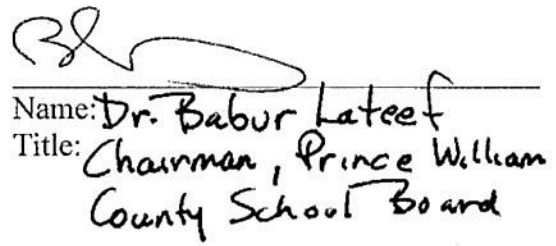 Name: Dr. Babur Lateef
Title: Chairman, Prince William
County School Board